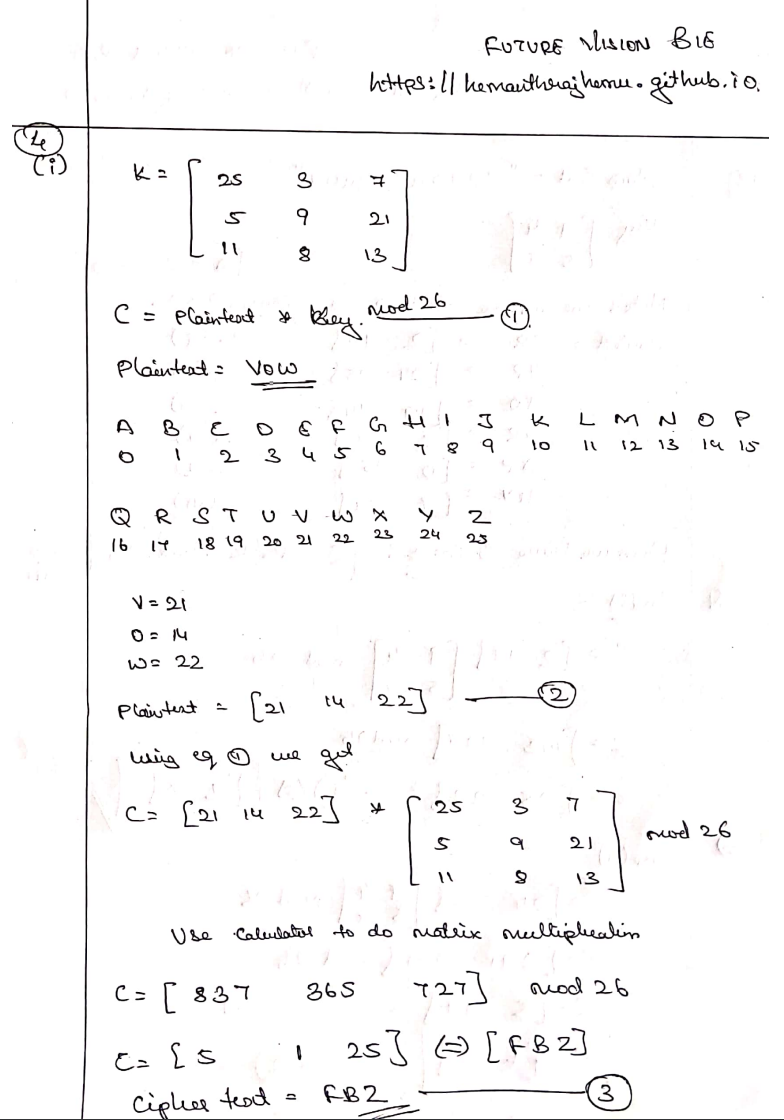 FUTURE VISION BIE
https://hemanthrajhemu.github.io.
4
(i)
K = [ 25 3 7
5 9 21
11 8 13 ]
C = Plaintext * Key. mod 26 ①.
Plaintext = VOW
A B C D E F G H I J K L M N O P
0 1 2 3 4 5 6 7 8 9 10 11 12 13 14 15
Q R S T U V W X Y Z
16 17 18 19 20 21 22 23 24 25
V = 21
O = 14
W = 22
Plaintext = [21 14 22] ②
using eq ① we get
C = [21 14 22] * [ 25 3 7
5 9 21 mod 26
11 8 13 ]
Use Calculator to do matrix multiplication
C = [ 837 365 727] mod 26
C = [ 5 1 25] (=) [FBZ]
Cipher text = FBZ ③